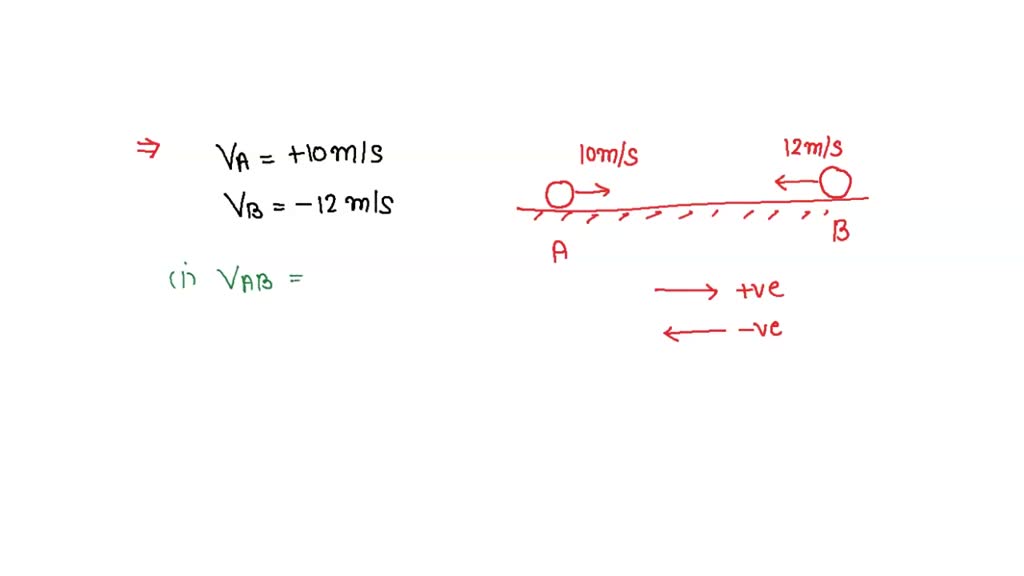 ⇒ VA = +10 m/s
VB = -12 m/s
(i) VAB =
10m/s
12m/s
A
B
→ +ve
← -ve